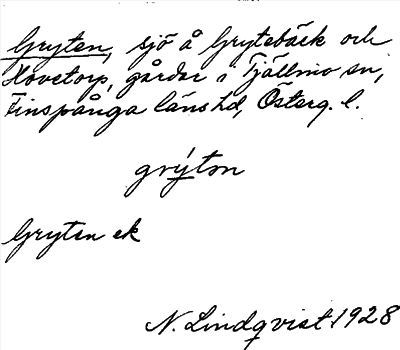 Gryten, sjö å Grytebäck och
Hovetorp, gårdar i Tjällmo sn,
Finspånga läns hd, Österg. l.
grýtən
Gryten ek
N. Lindqvist 1928